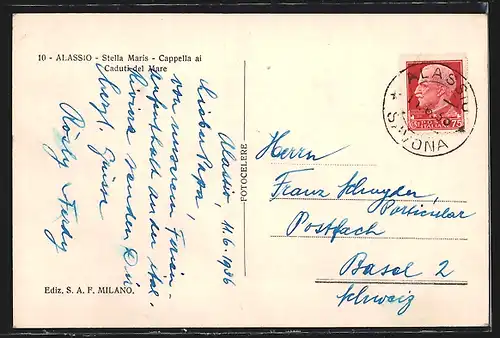 10 - ALASSIO - Stella Maris - Cappella ai
Caduti del Mare
Alassio, 11.6.1936
Lieber Papa,
von unserem Ferien-
aufenthalt an der ital.
Riviera senden Dir
herzl. Grüsse
Rösly & Ferdy
Ediz. S. A. F. MILANO.
FOTOCELERE
ALASSIO
SAVONA
75
Herrn
Franz Schnyder,
Particular
Postfach
Basel 2
Schweiz